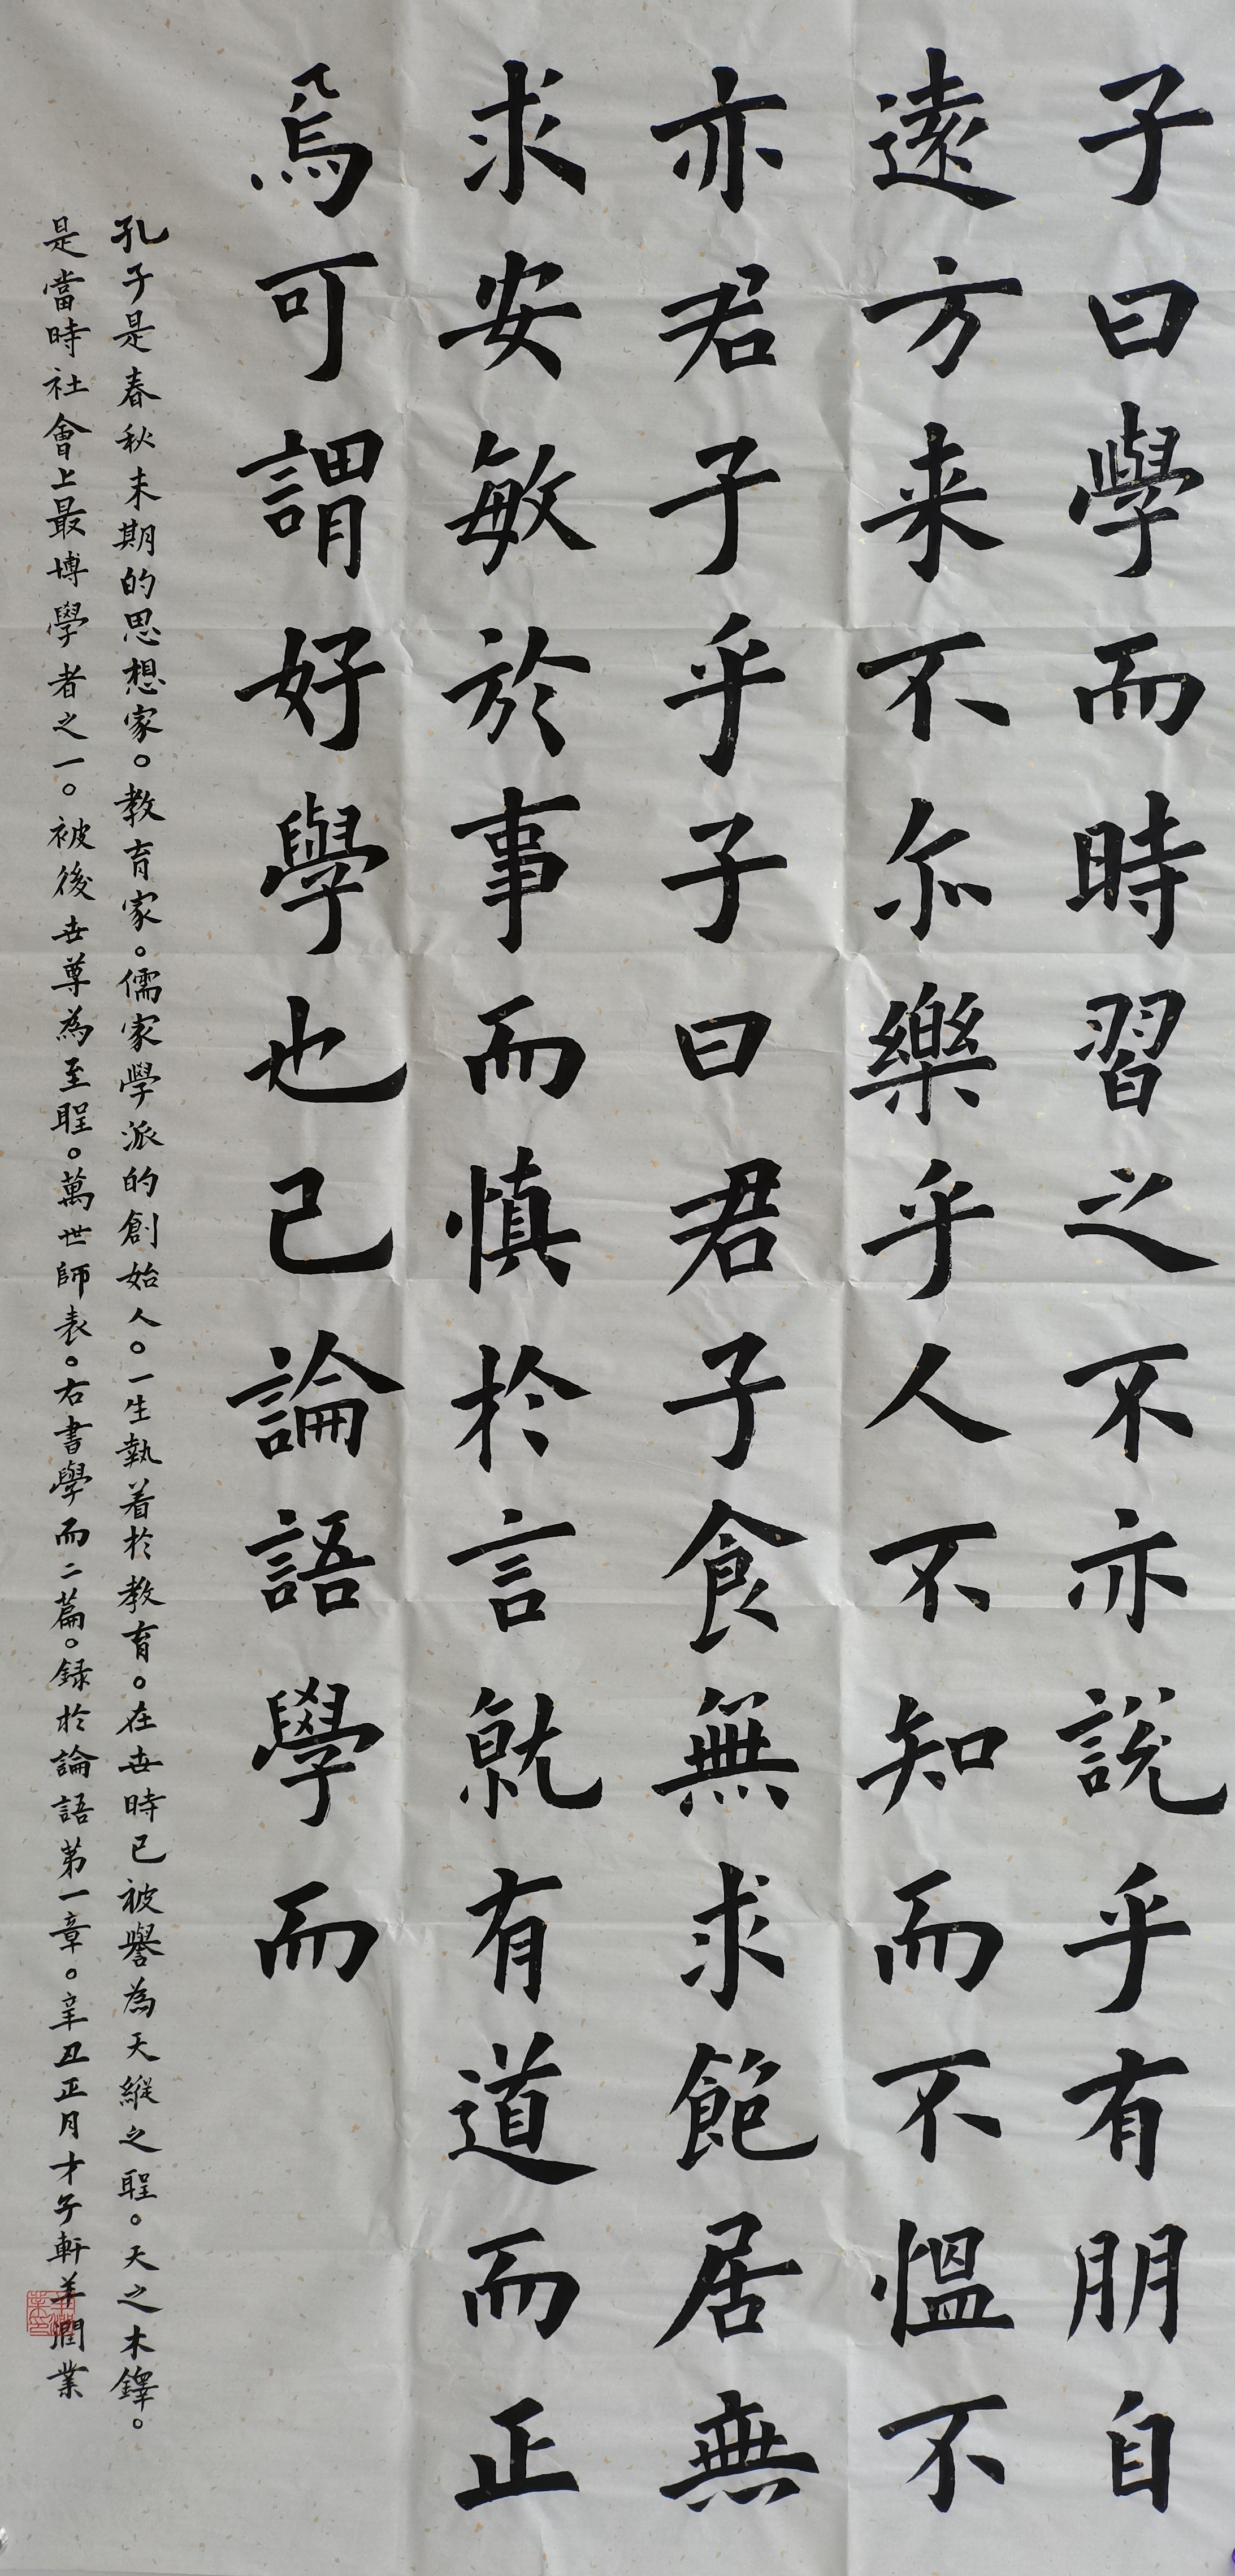 子曰學而時習之不亦說乎有朋自
遠方来不尒樂乎人不知而不慍不
亦君子乎子曰君子食無求飽居無
求安敏於事而慎於言就有道而正
焉可謂好學也已論語學而
孔子是春秋末期的思想家。教育家。儒家學派的創始人。一生執着於教育。在世時已被譽為天縱之聖。天之木鐸。
是當時社會上最博學者之一。被後世尊為至聖。萬世師表。右書學而二篇。録於論語第一章。辛丑正月才子軒羊潤業